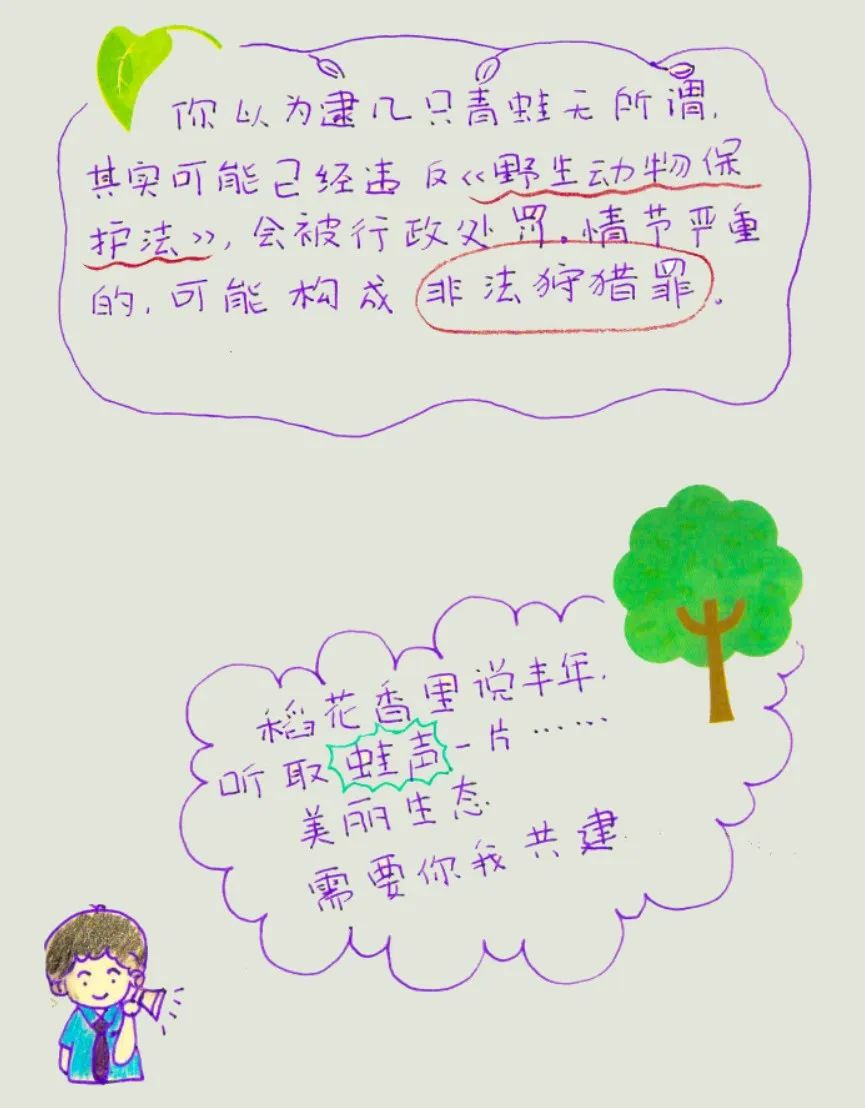 你以为逮几只青蛙无所谓,
其实可能已经违反《野生动物保
护法》,会被行政处罚.情节严重
的,可能构成非法狩猎罪.
稻花香里说丰年,
听取蛙声一片……
美丽生态
需要你我共建